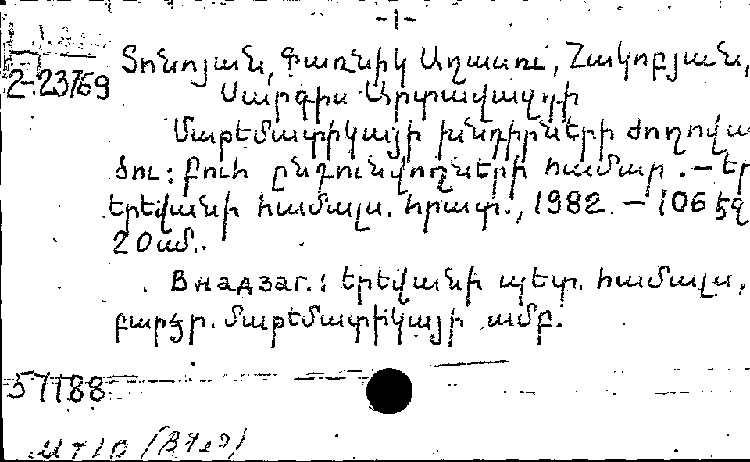 -1-
Տոնոյան, Գառնիկ Աղասու, Հակոբյան,
2-23769
Սարգիս Արտավազդի
Մաթեմատիկայի խնդիրների ժողովա
ծու: Բուհ ընդունվողների համար. - Եր
Երևանի համալս. հրատ., 1982. - 106 էջ
20սմ.
В надзаг.: Երևանի պետ. համալս,
բարձր. մաթեմատիկայի ամբ.
57188